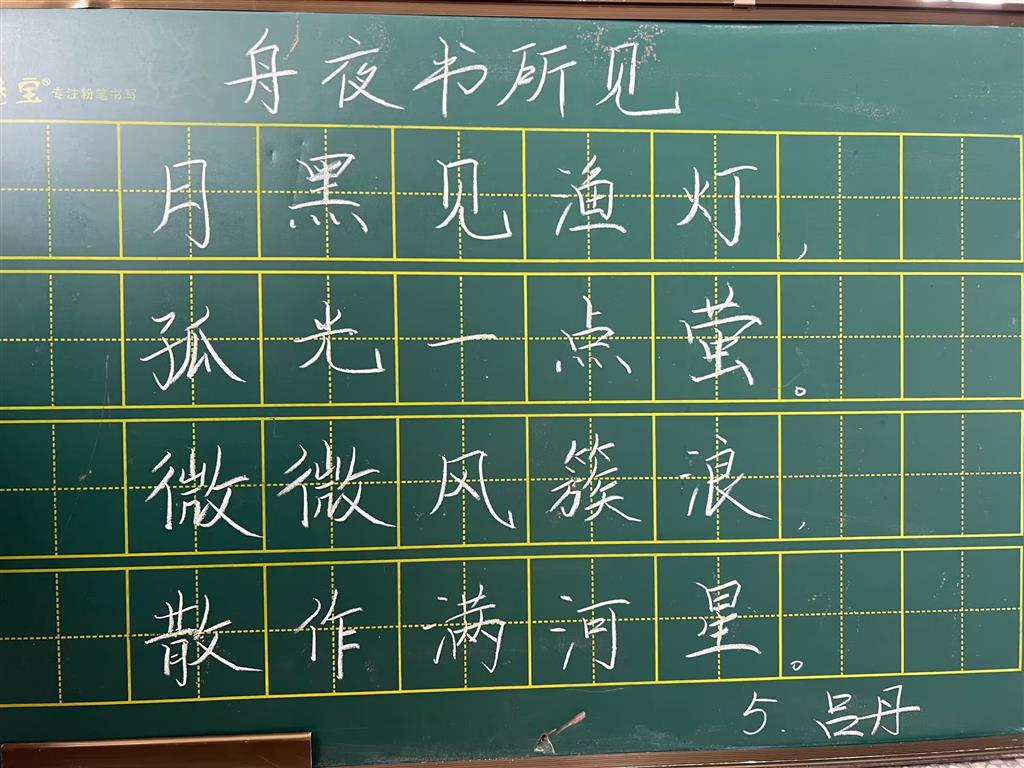 宝® 专注粉笔书写
舟夜书所见
月黑见渔灯，
孤光一点萤。
微微风簇浪，
散作满河星。
5. 吕丹